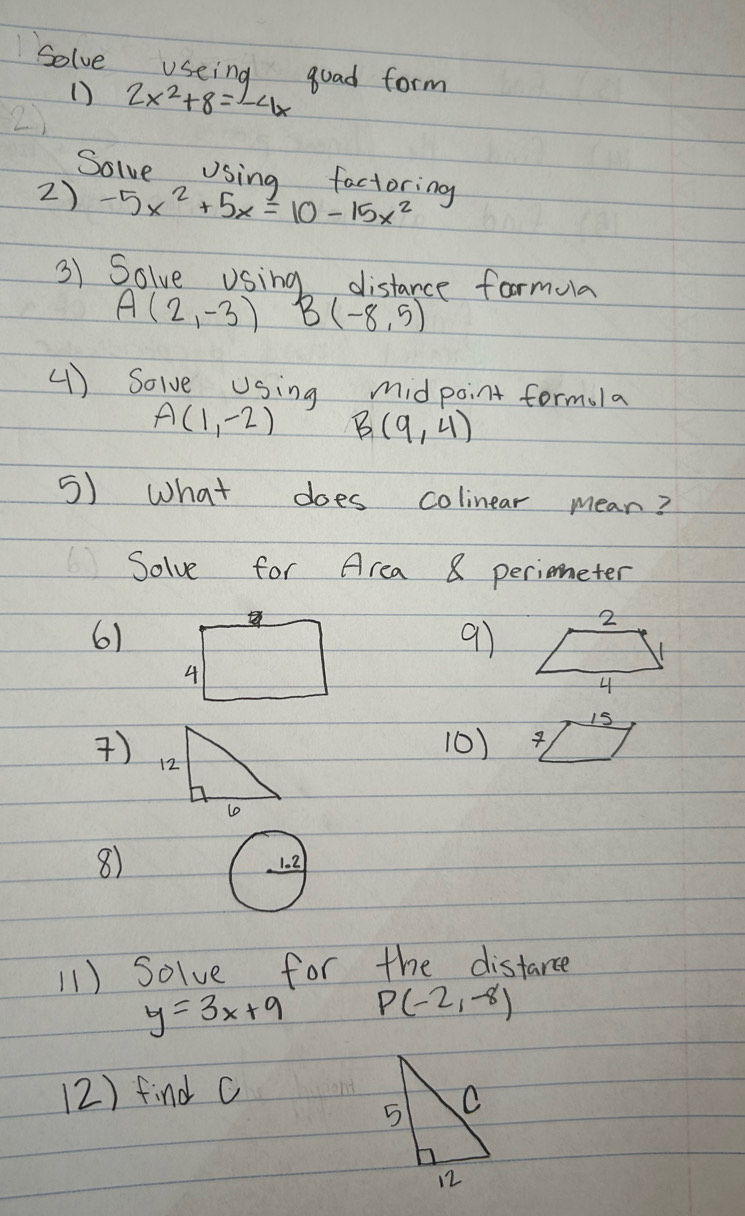 Solve useing quad form
1) 2x²+8=-4x
Solve using factoring
2) -5x²+5x=10-15x²
3) Solve using distance foormula
A(2,-3) B(-8,5)
4) Solve using midpoint formula
A(1,-2) B(9,4)
5) What does colinear mean?
Solve for Area & perimeter
6)
4
9)
2
1
4
7)
12
6
10)
15
7
8)
1.2
11) Solve for the distance
y=3x+9 P(-2,-8)
12) find C
5
C
12